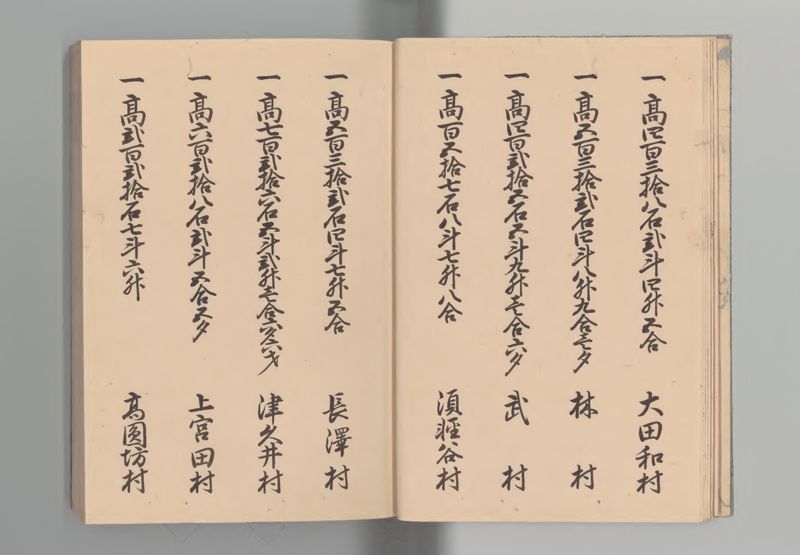 一高四百三拾八石弐斗四升五合 大田和村
一高五百三拾弐石四斗八升九合壱夕 林村
一高四百弐拾五石五斗九升壱合六夕 武村
一高百五拾七石八斗七升八合 須軽谷村
一高五百三拾弐石四斗七升五合 長澤村
一高七百弐拾六石五斗弐升壱合六夕六才 津久井村
一高六百弐拾八石弐斗五合五夕 上宮田村
一高弐百弐拾石七斗六升 高圓坊村